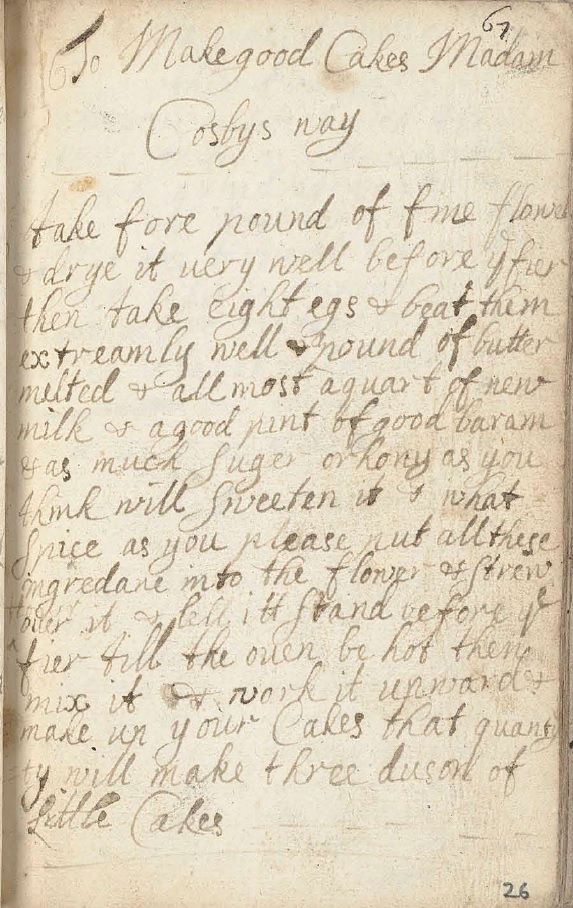 67
To Make good Cakes Madam
Cosbys way
take fore pound of fine flower
& drye it very well before ye fier
then take eight egs & beat them
extreamly well & pound of butter
melted & all most a quart of new
milk & a good pint of good baram
& as much suger or hony as you
think will sweeten it & what
spice as you please put all these
ingredane into the flower & strew
over it & lett itt stand before ye
fier till the ouen be hot then
mix it & work it upward &
make up your Cakes that quanti
ty will make three duson of
little Cakes
26